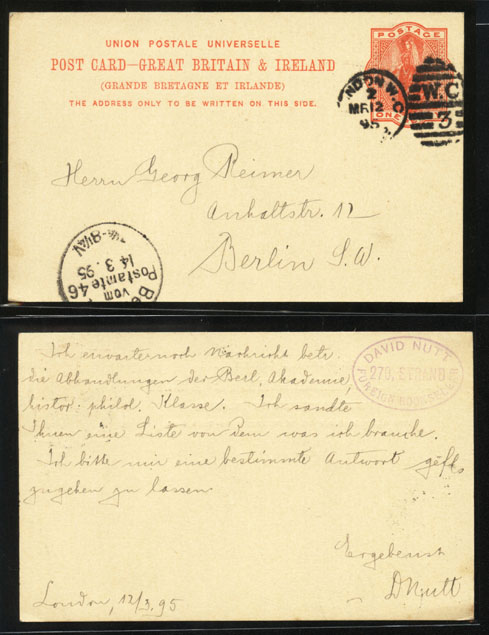 UNION POSTALE UNIVERSELLE
POST CARD—GREAT BRITAIN & IRELAND
(GRANDE BRETAGNE ET IRLANDE)
THE ADDRESS ONLY TO BE WRITTEN ON THIS SIDE.
POSTAGE
ONE
NDON W.C
2
MR12
95
W.C
3
Herrn Georg Reimer
Anhaltstr. 12
Berlin S.W.
vom
Postamte 46
14.3.95
DAVID NUTT
270, STRAND
FOREIGN BOOKSELLER
Ich erwarte noch Nachricht betr.
die Abhandlungen der Berl. Akademie
histor: philol. Klasse. Ich sandte
Ihnen eine Liste von dem was ich brauche.
Ich bitte mir eine bestimmte Antwort geff.
zugehen zu lassen
Ergebenst
DNutt
London, 12/3.95